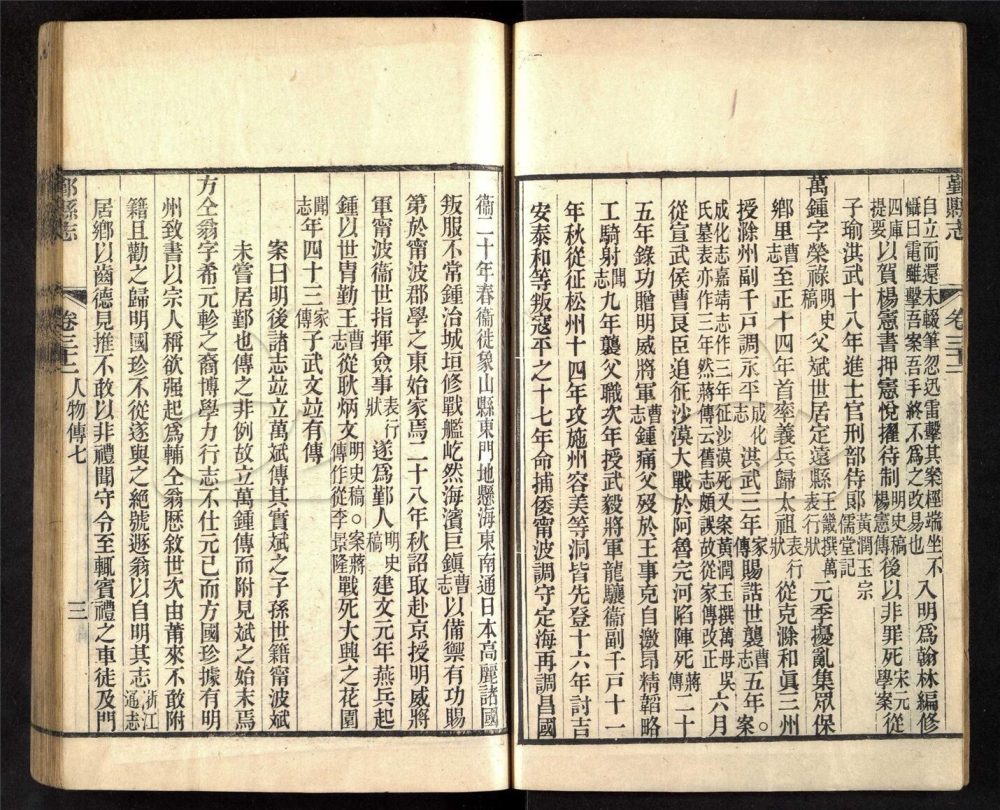 鄞縣志
卷三十二
自立而還未輟筆忽迅雷擊其案桱端坐不
懾曰電雖擊吾案吾手終不爲之改易也
入明爲翰林編修
四庫
提要
以賀楊憲書押憲悅擢待制
明史稿
楊憲傳
後以非罪死
宋元
學案
從
子瑜淇武十八年進士官刑部侍郞
黃潤玉宗
儒堂記
萬鍾字榮祿
明史
稿
父斌世居定遠縣
王畿撰萬
表行狀
元季擾亂集眾保
鄉里
曹
志
至正十四年首率義兵歸太祖
表行
狀
從克滁和眞三州
授滁州副千戸調永平
成化
志
洪武三年
家
傳
賜誥世襲
曹
志
五年
。案
成化志嘉靖志作三年征沙漠死又案黃潤玉撰萬母吳
氏墓表亦作三年然蔣傳云舊志頗誤故從家傳改正
六月
從宣武侯曹良臣追征沙漠大戰於阿魯完河陷陣死
蔣
傳
二十
五年錄功贈明威將軍
曹
志
鍾痛父歿於王事克自激昂精韜略
工騎射
聞
志
九年襲父職次年授武毅將軍龍驤衞副千戸十一
年秋從征松州十四年攻施州容美等洞皆先登十六年討吉
安泰和等叛寇平之十七年命捕倭甯波調守定海再調昌國
衞二十年春衞徙象山縣東門地懸海東南通日本高麗諸國
叛服不常鍾治城垣修戰艦屹然海濱巨鎮
曹
志
以備禦有功賜
第於甯波郡學之東始家焉二十八年秋詔取赴京授明威將
軍甯波衞世指揮僉事
表行
狀
遂爲鄞人
明史
稿
建文元年燕兵起
鍾以世胄勤王
曹
志
從耿炳文
明史稿。案蔣
傳作從李景隆
戰死大興之花園
聞
志
年四十三
家
傳
子武文竝有傳
案曰明後諸志竝立萬斌傳其實斌之子孫世籍甯波斌
未嘗居鄞也傳之非例故立萬鍾傳而附見斌之始末焉
方仝翁字希元軫之裔博學力行志不仕元已而方國珍據有明
州致書以宗人稱欲强起爲輔仝翁歷敘世次由莆來不敢附
籍且勸之歸明國珍不從遂與之絕號遯翁以自明其志
浙江
通志
居鄉以齒德見推不敢以非禮聞守令至輒賓禮之車徒及門
鄞縣志
卷三十二
人物傳七
三